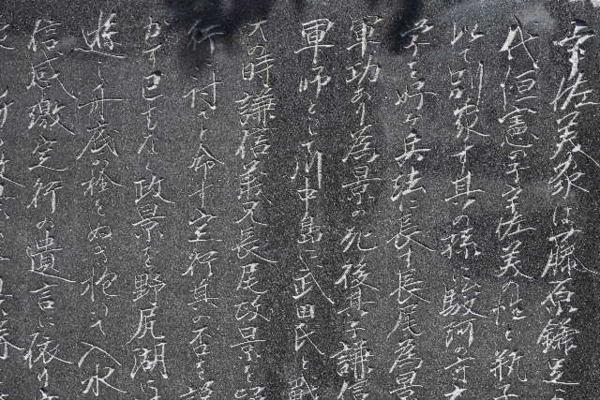 宇佐美家は藤原鎌足
代恒憲の子宇佐美の姓を
此て別家す其の孫に駿河の守
学を好み兵法に長す長尾為景
軍功あり為景の死後其子謙信
軍師として川中島に武田氏と戦
大の時謙信義兄長尾政景を
行に討てと命す定行其の不を
むす已もなく政景を野尻湖に
遊し舟底の栓をぬき抱いて入水
信感激定行の遺言に依り